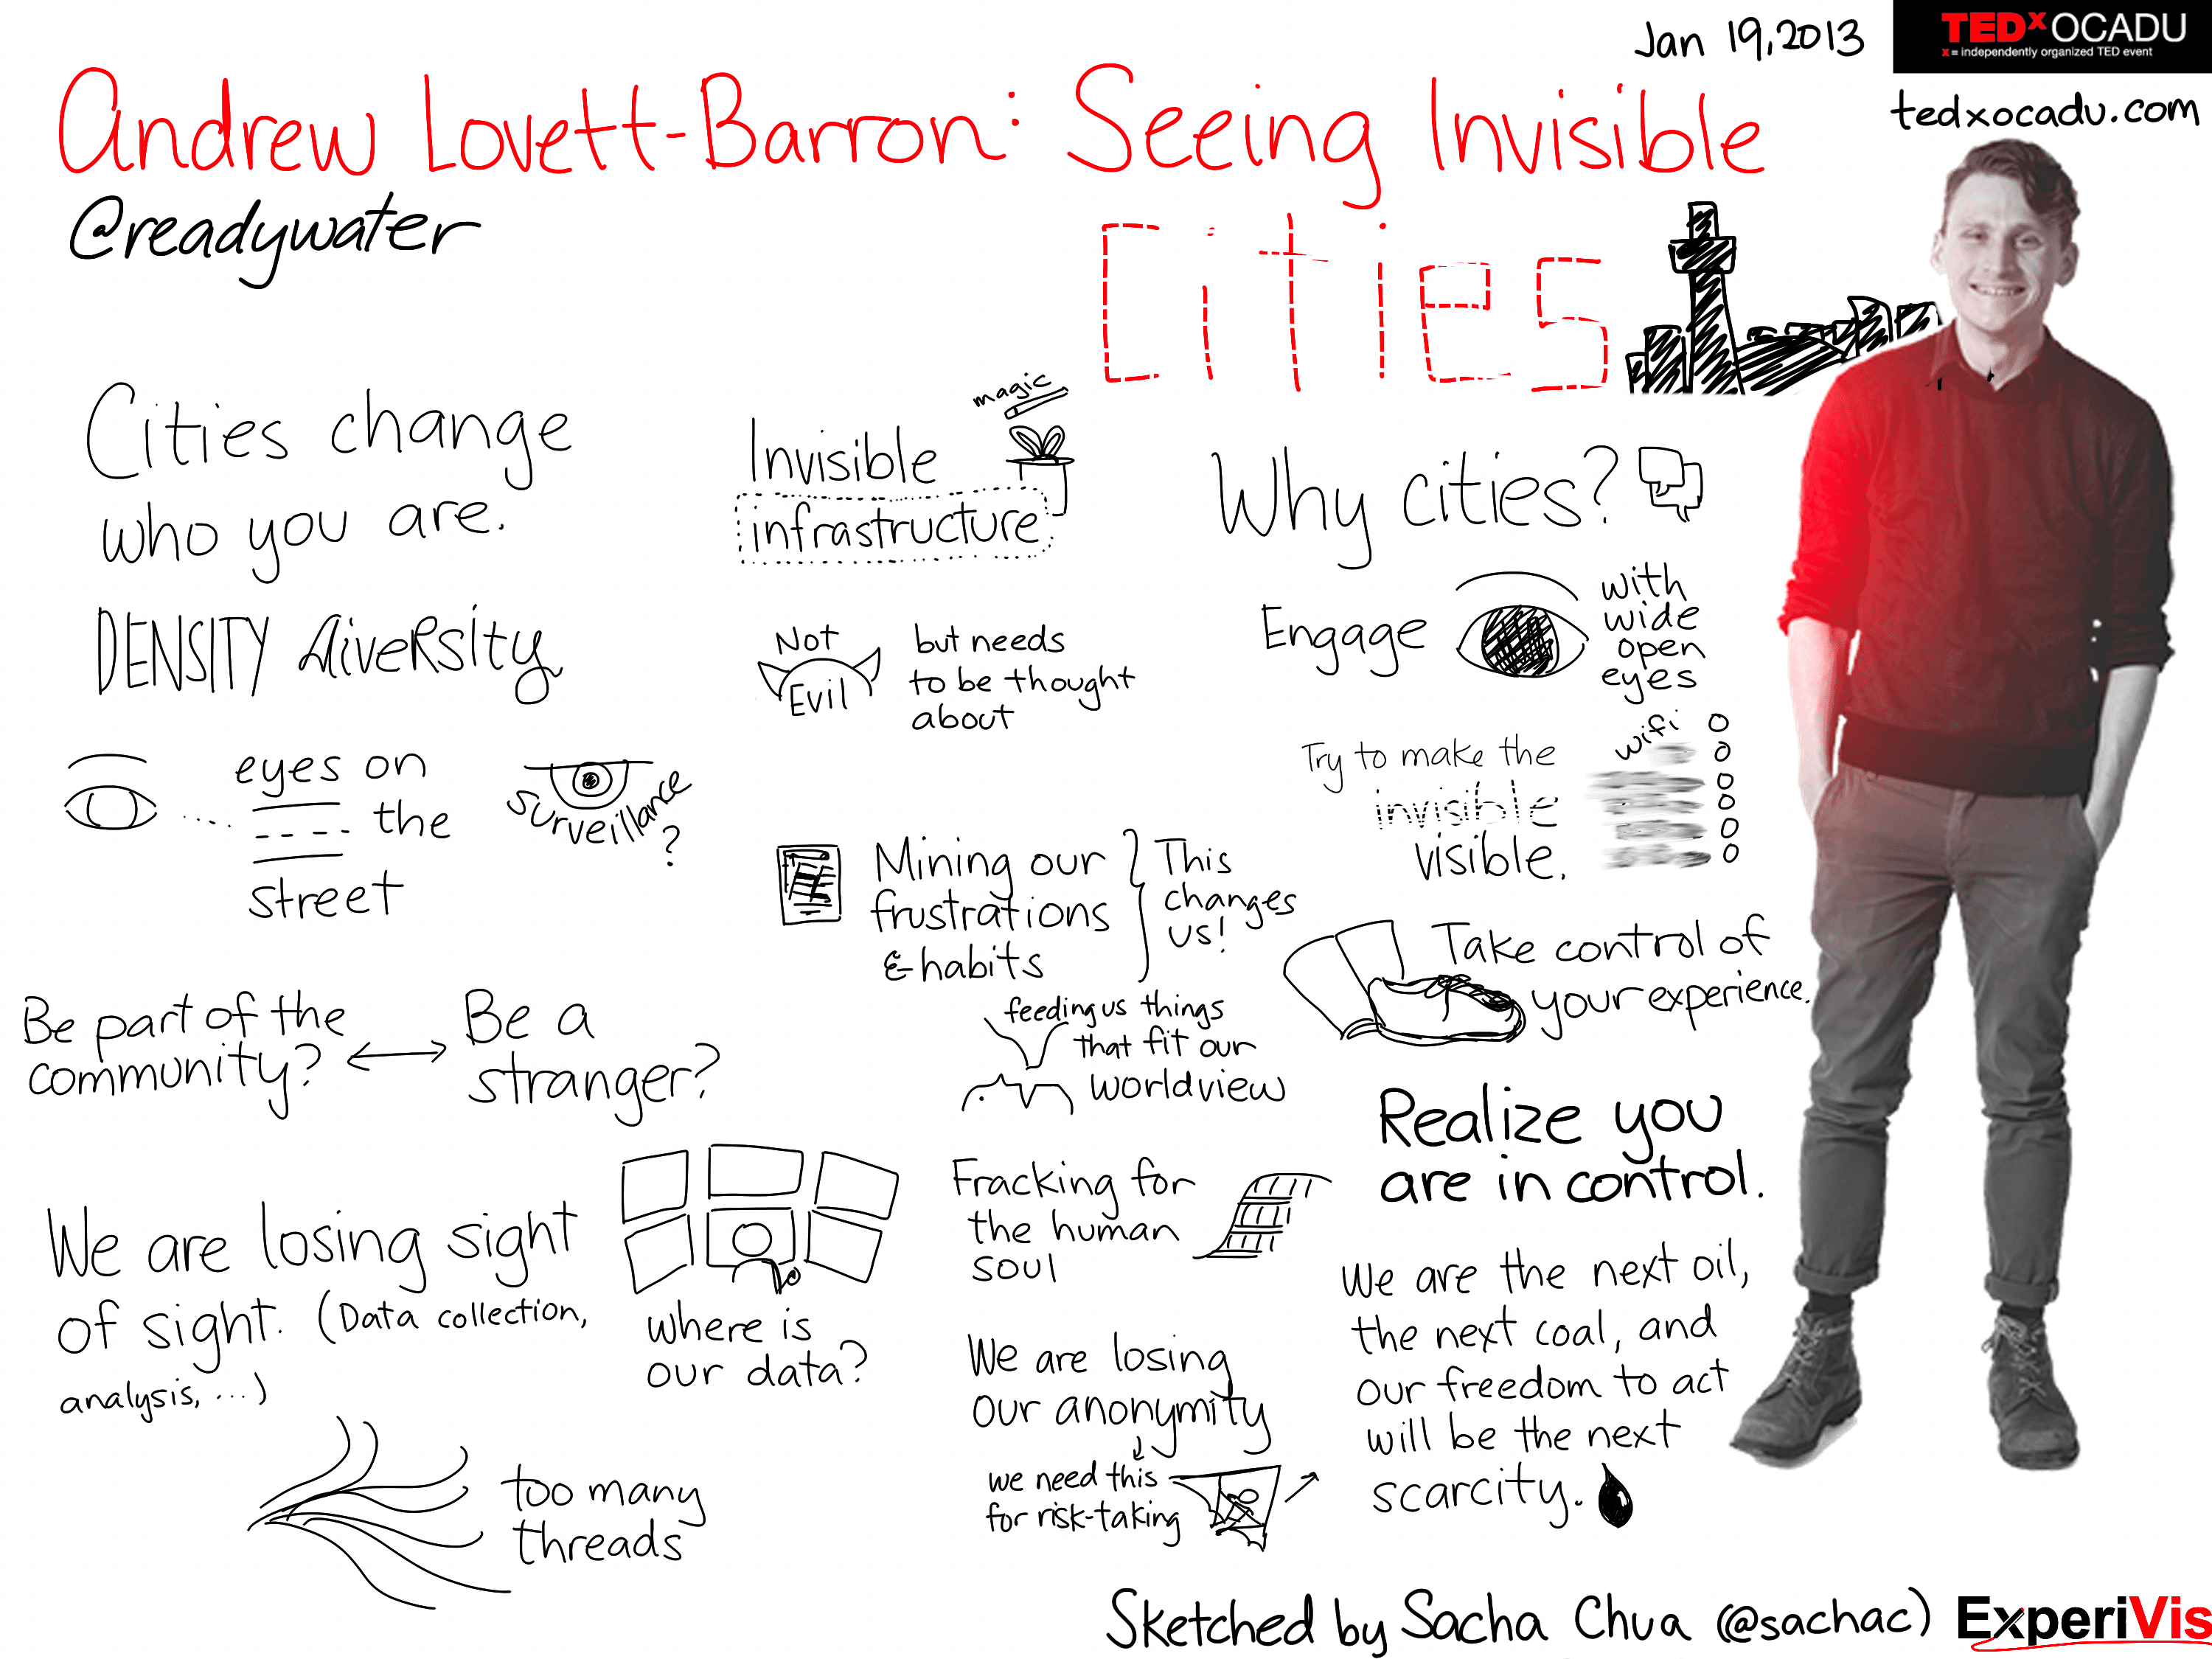 Jan 19, 2013
TEDxOCADU
x = independently organized TED event
tedxocadu.com
Andrew Lovett-Barron: Seeing Invisible
Cities
@readywater
Cities change
who you are.
DENSITY diversity
eyes on
the
street
surveillance
?
Be part of the
community?
Be a
stranger?
We are losing sight
of sight. (Data collection,
analysis, ...)
where is
our data?
too many
threads
magic
Invisible
infrastructure
Not
Evil
but needs
to be thought
about
Mining our
frustrations
& habits
This
changes
us!
feeding us things
that fit our
worldview
Fracking for
the human
soul
We are losing
our anonymity
we need this
for risk-taking
Why cities?
Engage
with
wide
open
eyes
Try to make the
invisible
visible.
wifi
Take control of
your experience.
Realize you
are in control.
We are the next oil,
the next coal, and
our freedom to act
will be the next
scarcity.
Sketched by Sacha Chua (@sachac)
ExperiVis